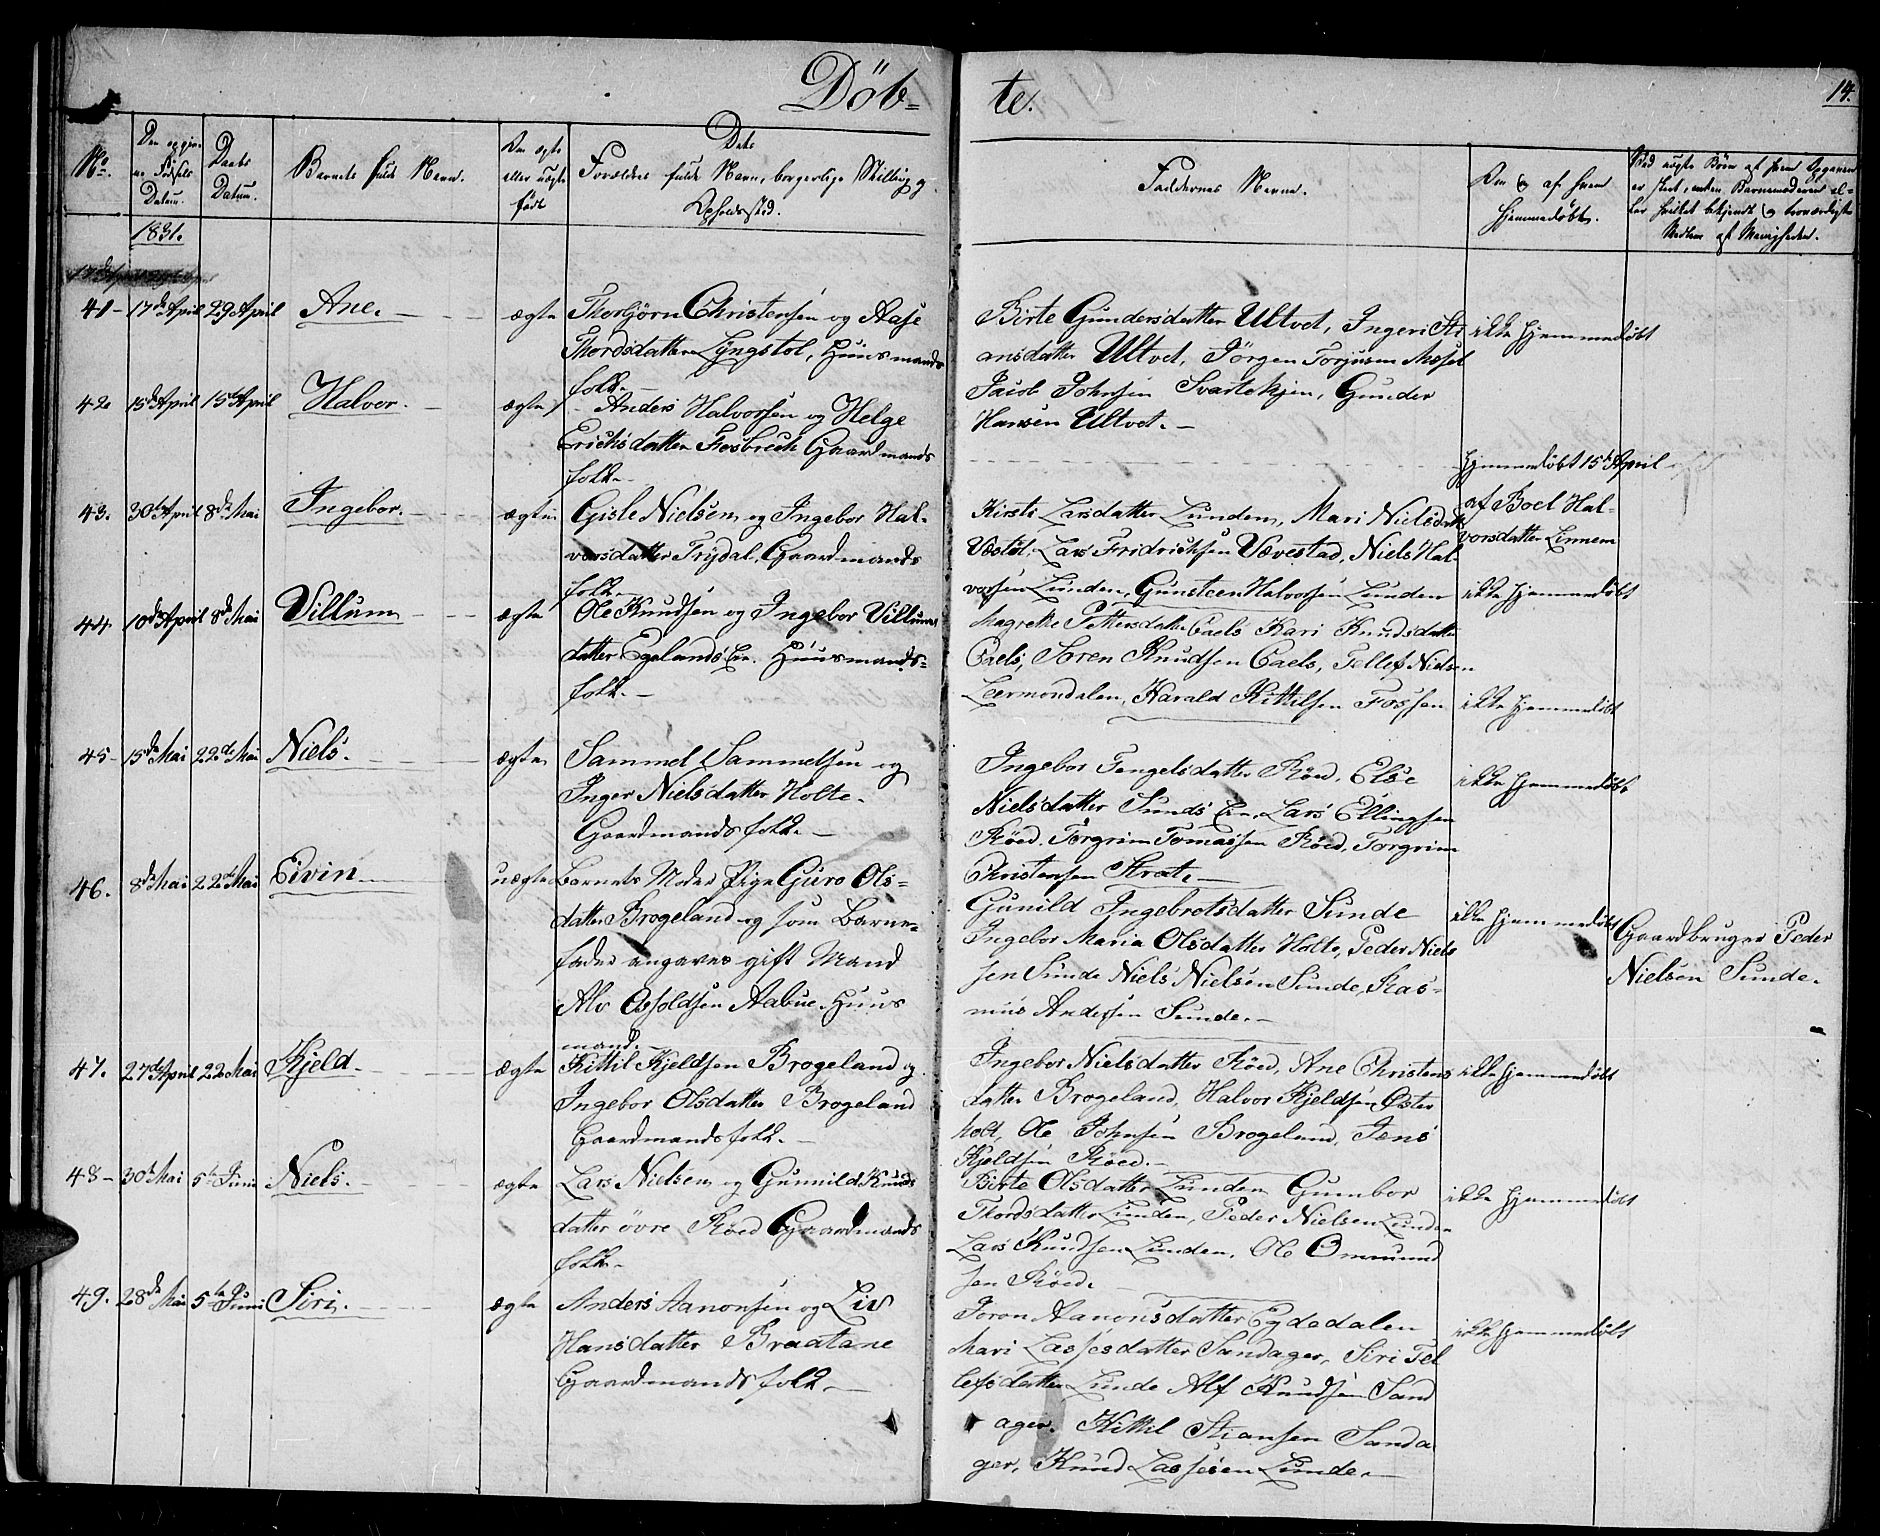 Döb=
te.
14.
No.
Den opgiv=
ne Fødsels
Datum.
Daabs
Datum.
Barnets fulde Navn.
Om ægte
eller uægte
født
Dets
Forældres fulde Navn, borgerlige Stilling og
Opholdssted.
Faddernes Navne.
Om og af hvem
hjemmedøbt.
Ved uægte Børn af hvem Opgaven
er skeet, enten Barnemoderen el=
ler hvilket bekjendt og troværdigt
Medlem af Menigheden.
1831.
41- 17de April 29 April Ane. ægte Thorbjörn Christensen og Aase
Thordsdatter Lyngstol, Huusmands
folk.-
Birte Gundersdatter Ultvet, Ingeri Sti
ansdatter Ultvet, Jörgen Torjusen
Jacob Johnsen Svartekjen, Gunder
Hansen Ultvet.-
ikke hjemmedøbt
42 15de April 15de April Halvor. ægte Anders Halvorsen og Helge
Erichsdatter Fosbrech Gaardmands
folk.-
hjemmedøbt 15de April
af Boel Hal-
vorsdatter Linnem
43. 30te April 8de Mai Ingebor. ægte Gisle Nielsen og Ingebor Hal-
vorsdatter Trydal, Gaardmands
folk.-
Kirsti Larsdatter Lunden, Mari Nielsdatt
Væstöl, Lars Fridrichsen Vævestad, Niels Hal
vorsen Lunden, Gunsteen Halvorsen Lunden
ikke hjemmedøbt
44. 10de April 8de Mai Villum ægte Ole Knudsen og Ingebor Villums
datter Egelands Eie. Huusmands=
folk.-
Magrethe Pettersdatter Caels Kari Knudsdatter
Caels, Sören Knudsen Caels, Tellef Nielsen
Leermondalen, Harald Kittilsen Fossen
ikke hjemmedøbt
45- 15de Mai 22de Mai Niels. ægte Sammel Sammelsen og
Inger Nielsdatter Holte.
Gaardmandsfolk.-
Ingebor Tengelsdatter Röed, Else
Nielsdatter Sunds Eie, Lars Ellingsen
Röed, Torgrim Tomassen Röed, Torgrim
Christensen Strat.-
ikke hjemmedøbt
46. 8de Mai 22de Mai Eivin. uægte Barnets Moder Pige Guro Ols=
datter Brogeland og som Barne=
fader angaves gift Mand
Alv Osfoldsen Aabue. Huus
mand.-
Gunild Ingebretsdatter Sunde
Ingebor Maria Olsdatter Holte, Peder Niels
sen Sunde Niels Nielsen Sunde, Ras=
mus Andersen Sunde.-
ikke hjemmedøbt
Gaardbruger Peder
Nielsen Sunde.
47. 27de April 22 Mai Kjeld. ægte Kittil Kjeldsen Brogeland og
Ingebor Olsdatter Brogeland
Gaardmandsfolk.-
Ingebor Nielsdatter Röed, Ane Christens
datter Brogeland, Halvor Kjeldsen Öster
holt, Ole Johnsen Brogeland, Jens
Kjeldsen Röed.-
ikke hjemmedøbt
48- 30te Mai 5te Juni Niels. ægte Lars Nielsen og Gunnild Knuds
datter övre Röed Gaardmands
folk.-
Birte Olsdatter Lunden Gumbor
Thordsdatter Lunden, Peder Nielsen Lunden
Lars Knudsen Lunden, Ole Ommund
sen Röed.
ikke hjemmedøbt
49. 28de Mai 5te Juni Siri. ægte Anders Aanonsen og Liv
Hansdatter Braatane
Gaardmandsfolk.-
Joron Aanonsdatter Egdedalen
Mari Lassesdatter Sandager, Siri Tel
lefsdatter Lunde Alf Knudsen Sand
ager. Kittil Stiansen Sanda
ger, Knud Lassesen Lunde.-
ikke hjemmedøbt